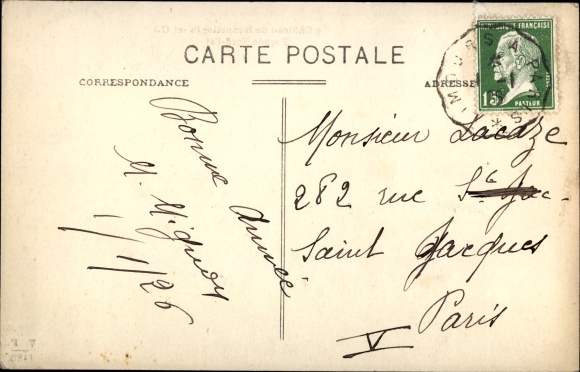 CARTE POSTALE
CORRESPONDANCE
ADRESSE
RÉPUBLIQUE FRANÇAISE
15c
PASTEUR
LIMOURS A PARIS
Bonne Année
M. Mignon
1/1/26
Monsieur Lacaze
282 rue
Saint Jacques
Paris
V